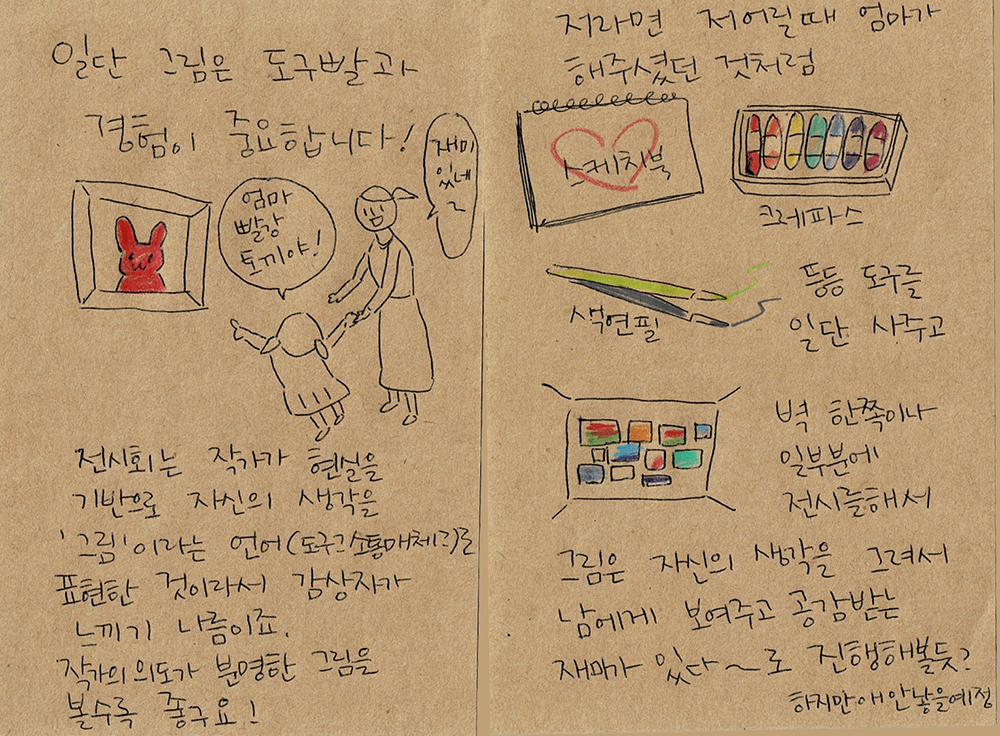 일단 그림은 도구빨과
경험이 중요합니다!
재미
있네
~
엄마
빨강
토끼야!
전시회는 작가가 현실을
기반으로 자신의 생각을
'그림'이라는 언어(도구그소통매체크)로
표현한 것이라서 감상자가
느끼기 나름이죠.
작가의 의도가 분명한 그림을
볼수록 좋구요!
저라면 저어릴때 엄마가
해주셨던 것처럼
스케치북
크레파스
색연필
뜽등 도구를
일단 사주고
벽 한쪽이나
일부분에
전시를해서
그림은 자신의 생각을 그려서
남에게 보여주고 공감받는
재미가 있다~로 진행해볼듯?
하지만애안낳을예정